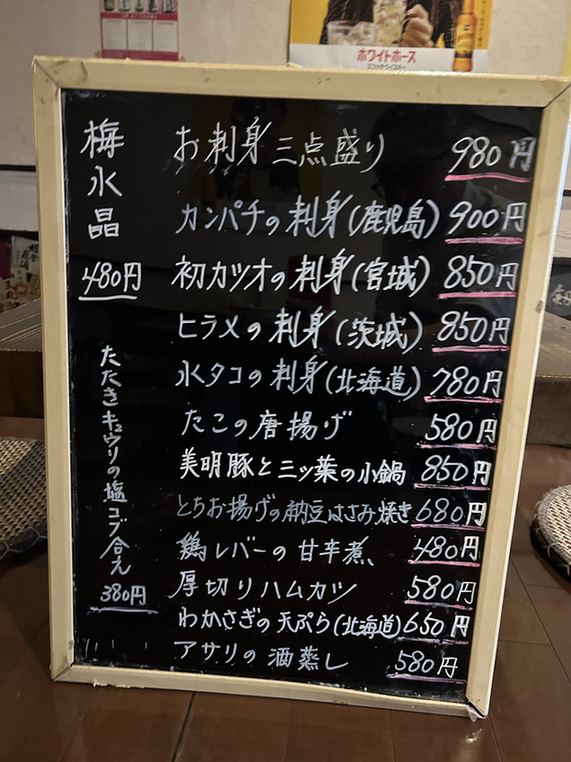 ホワイトホース
スコッチウイスキー
お刺身三点盛り 980円
カンパチの刺身(鹿児島) 900円
初カツオの刺身(宮城) 850円
ヒラメの刺身(茨城) 850円
水タコの刺身(北海道) 780円
たこの唐揚げ 580円
美明豚と三ッ葉の小鍋 850円
とちお揚げの納豆はさみ焼き 680円
鶏レバーの甘辛煮 480円
厚切りハムカツ 580円
わかさぎの天ぷら(北海道) 650円
アサリの酒蒸し 580円
梅水晶
480円
たたきキュウリの塩コブ合え
380円